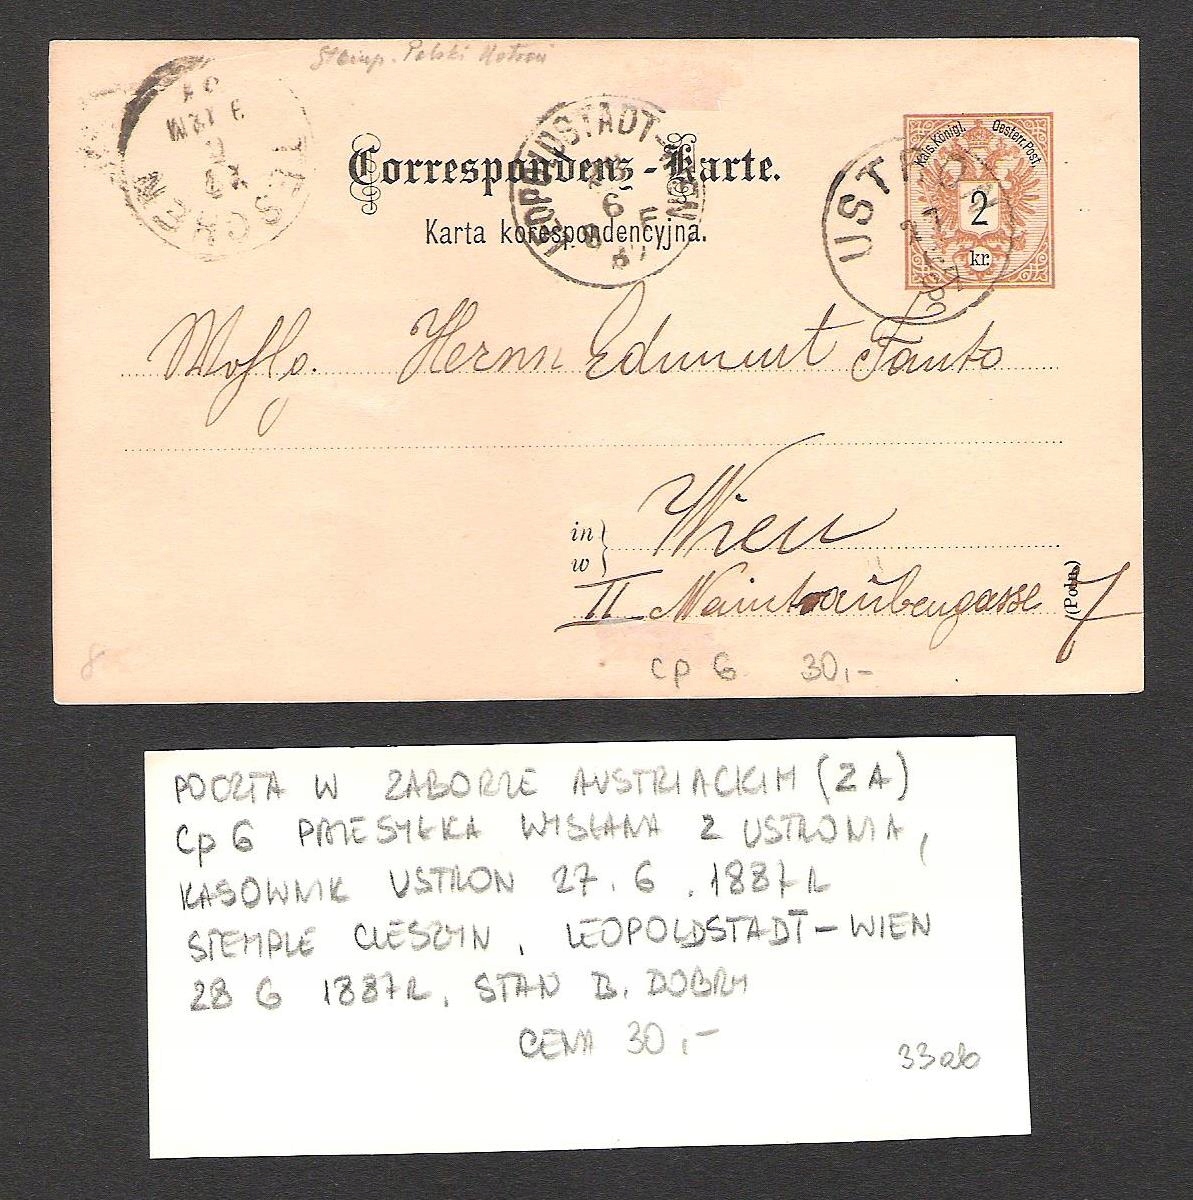 Stemp. Polski Ustroń
TESCHEN
LEOPOLDSTADT-WIEN
28
6
8 F
87
Correspondenz-Karte.
Karta korespondencyjna.
Kais. Königl. Oesterr. Post
2
kr.
USTRON
27
Wohlg. Herrn Edmunt Fanto
in
w
Wien
II Weintraubengasse 7
(Poln.)
8
cp 6 30,-
POCZTA W ZABORZE AUSTRIACKIM (ZA)
Cp 6 PRZESYŁKA WYSŁANA Z USTRONIA,
KASOWNIK USTRON 27.6.1887R
STEMPLE CIESZYN, LEOPOLDSTADT-WIEN
28 6 1887R, STAN B. DOBRY
CENA 30,-